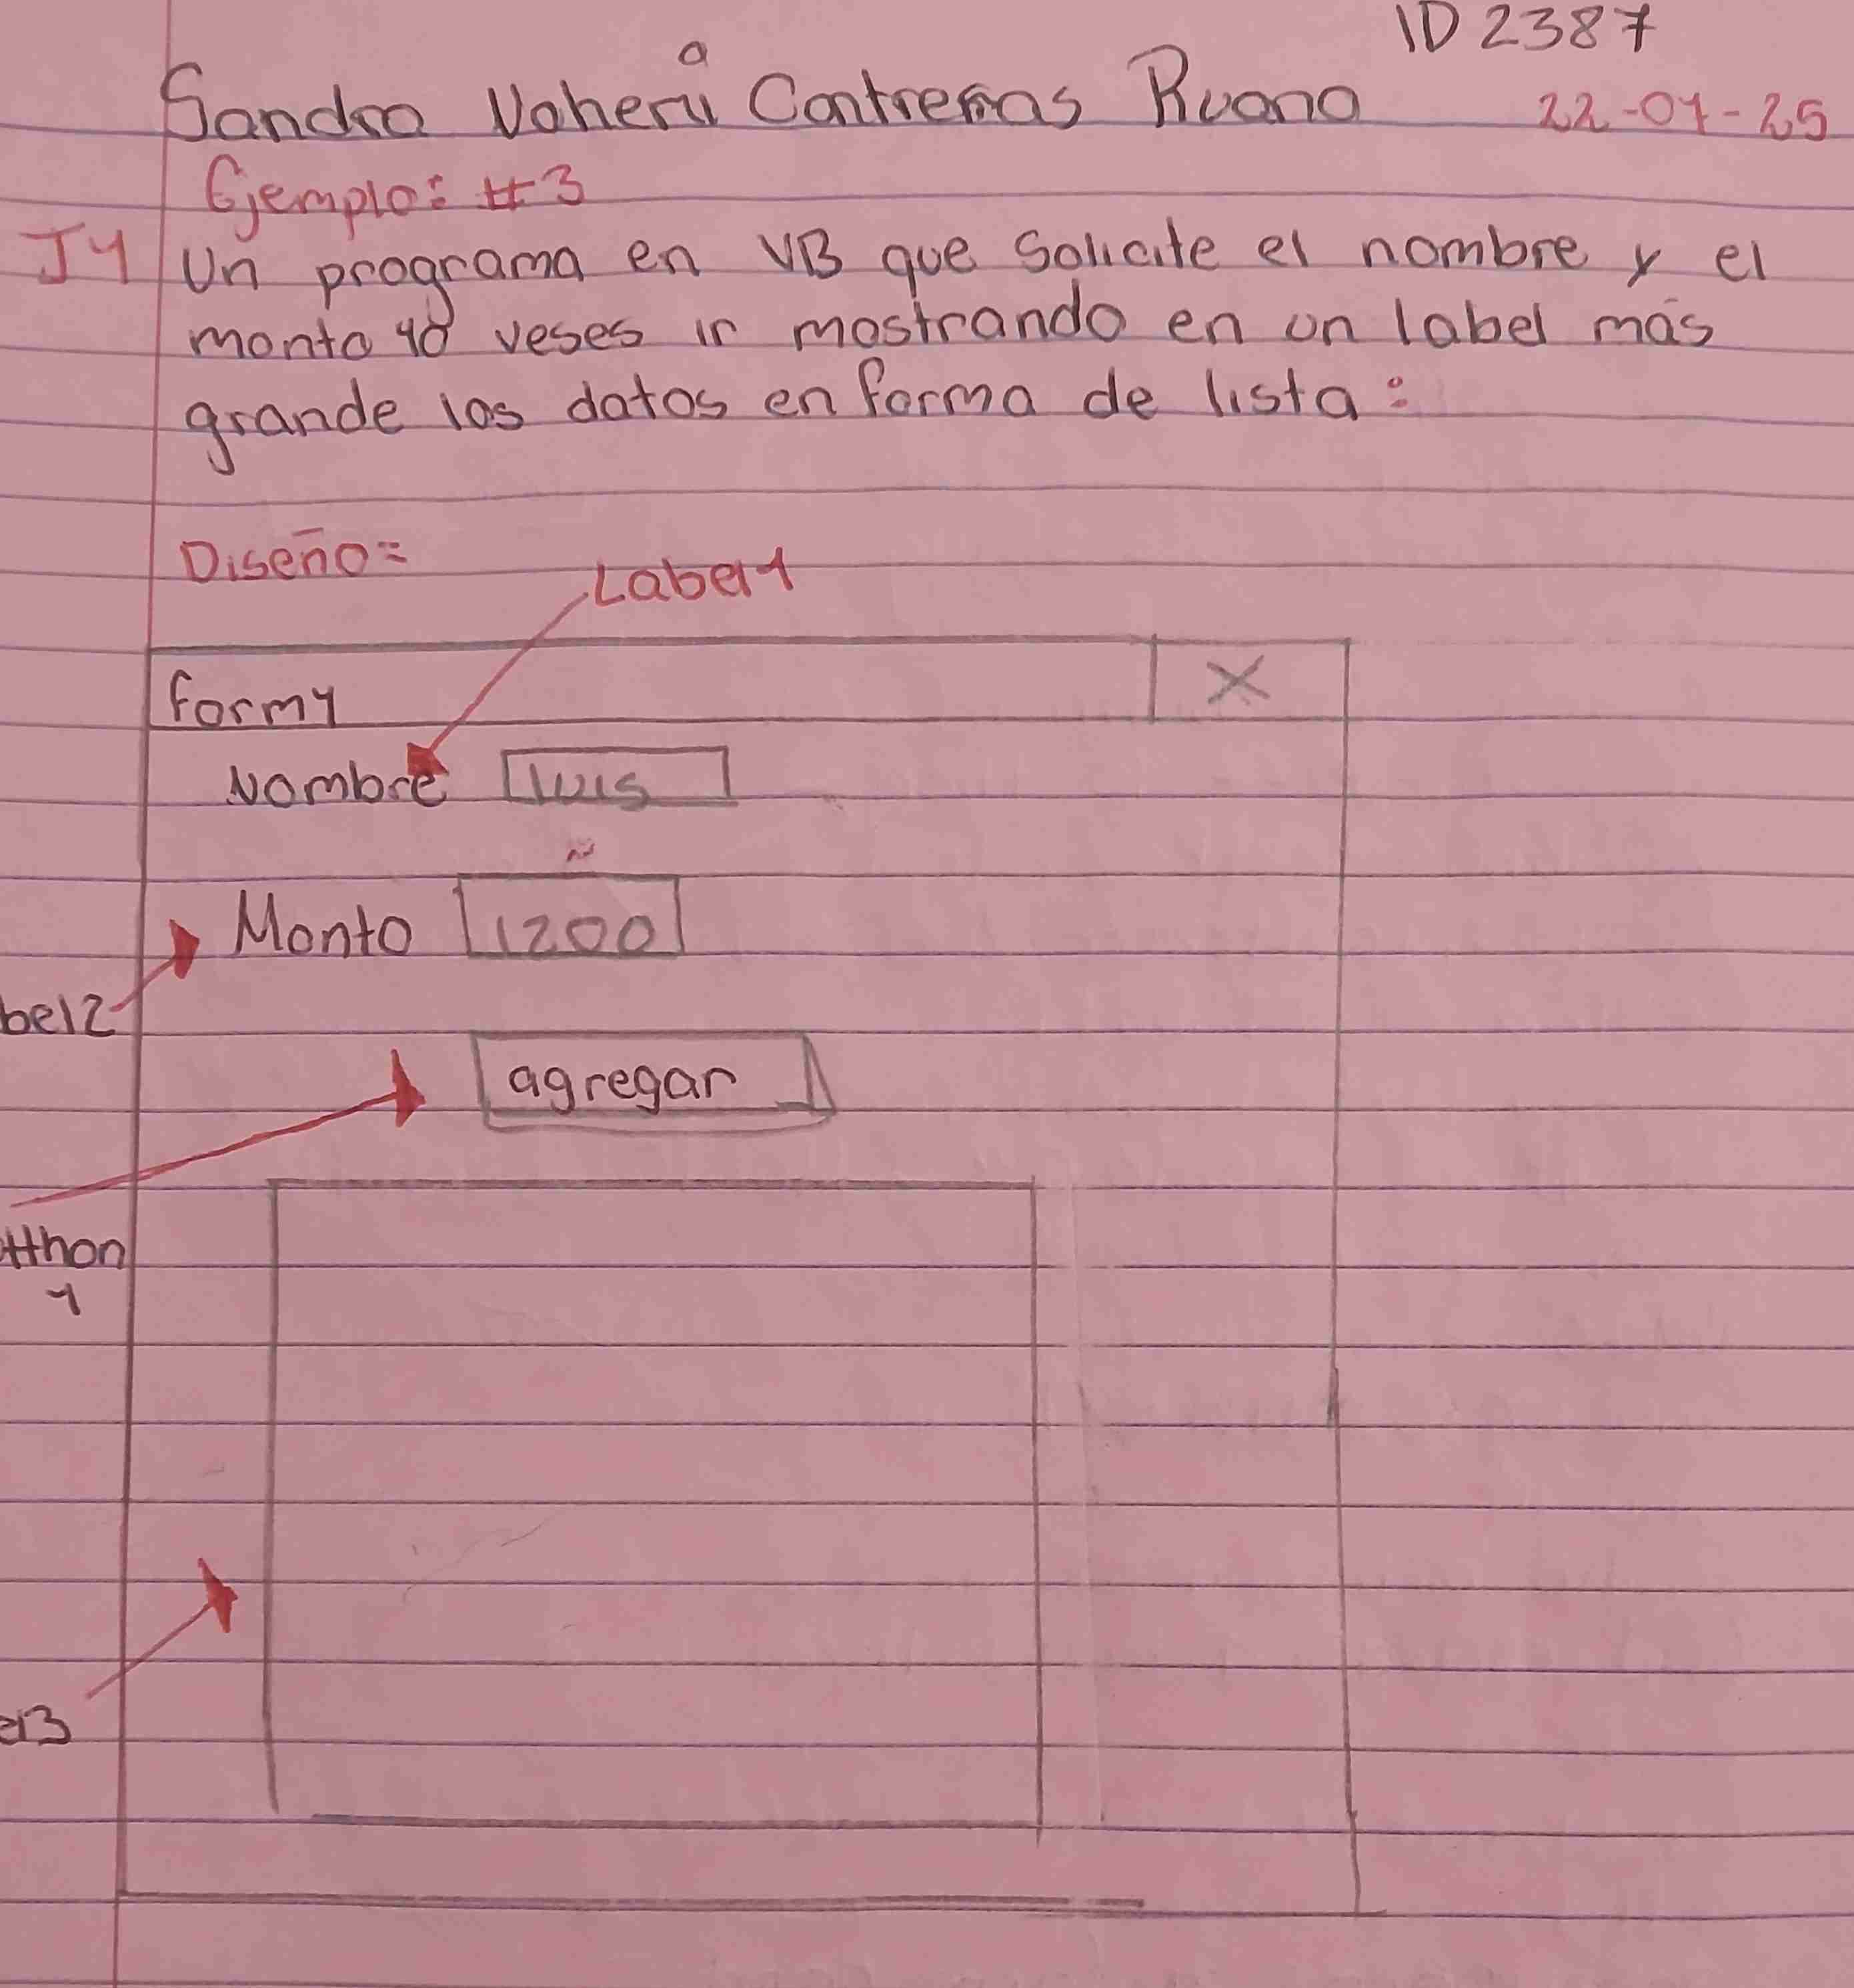 ID 2387
Sandra Noherá Contreras Ruano 22-07-25
Ejemplo: #3
J1 Un programa en VB que solicite el nombre y el
monto 10 veses ir mostrando en un label más
grande los datos en forma de lista:
Diseño=
Label1
form1 X
Nombre luis
Monto 1200
bel2
agregar
tthon
1
el3